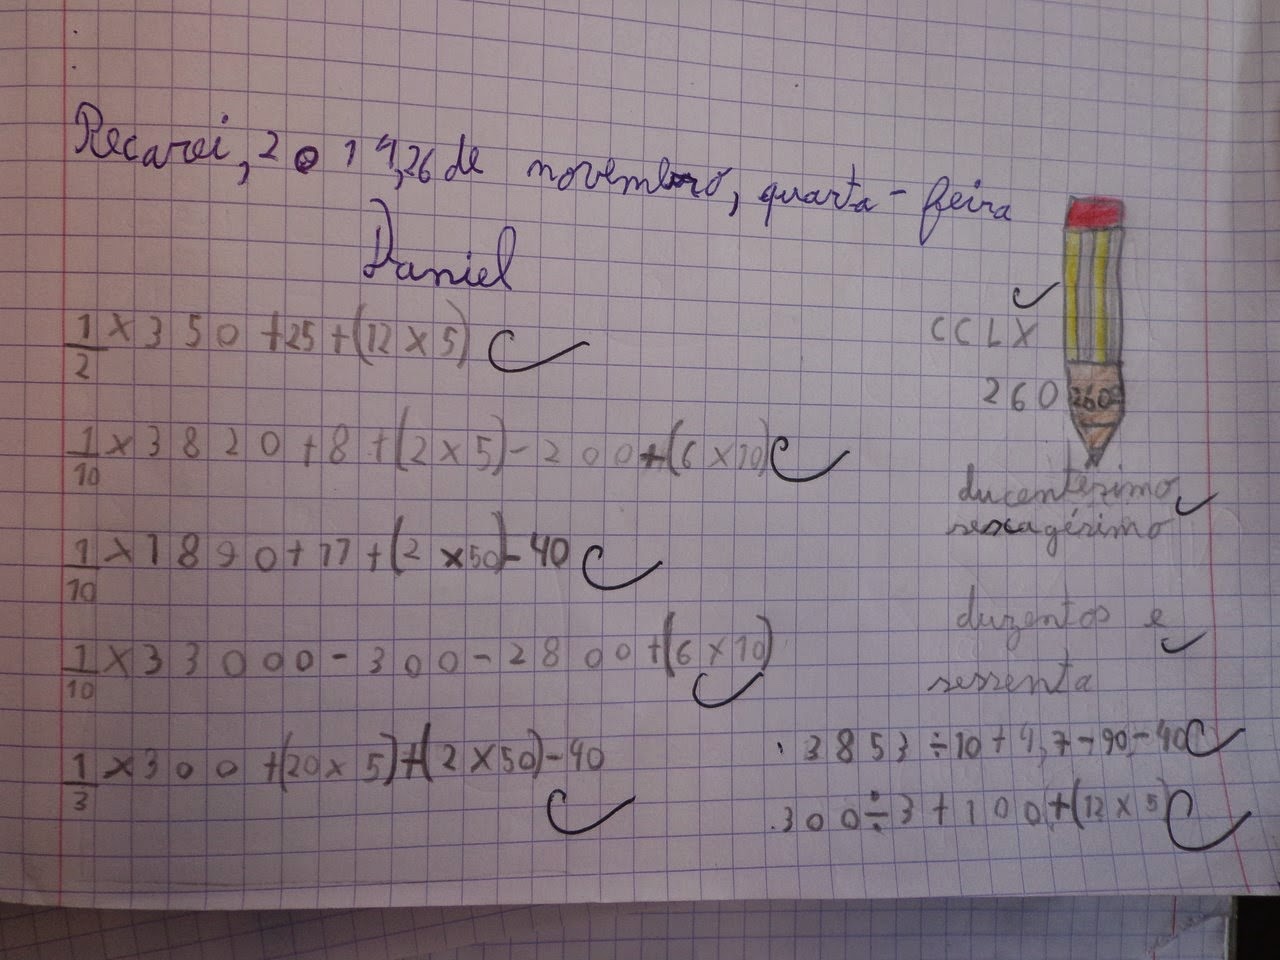 Recarei, 2014, 26 de novembro, quarta-feira
Daniel
1/2 x 350 + 25 + (12 x 5)
1/10 x 3820 + 8 + (2 x 5) - 200 + (6 x 10)
1/10 x 1890 + 11 + (2 x 50) - 40
1/10 x 33000 - 300 - 2800 + (6 x 10)
1/3 x 300 + (20 x 5) + (2 x 50) - 40
CCLX
260
260
ducentésimo
sexagésimo
duzentos e
sessenta
. 3853 ÷ 10 + 4,7 - 90 - 40
. 300 ÷ 3 + 100 + (12 x 5)